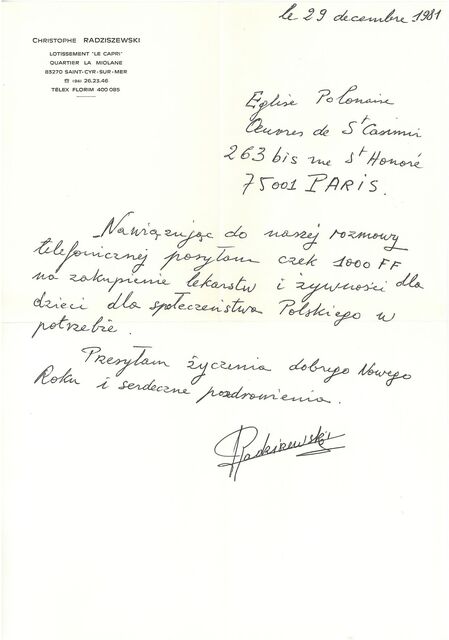 le 29 decembre 1981
CHRISTOPHE RADZISZEWSKI
LOTISSEMENT "LE CAPRI"
QUARTIER LA MIOLANE
83270 SAINT-CYR-SUR-MER
☎ (94) 26.23.46
TELEX FLORIM 400 085
Eglise Polonaise
Œuvres de St Casimir
263 bis rue St Honoré
75001 PARIS.
Nawiązując do naszej rozmowy
telefonicznej posyłam czek 1000 FF
na zakupienie lekarstw i żywności dla
dzieci dla społeczeństwa Polskiego w
potrzebie.
Przesyłam życzenia dobrego Nowego
Roku i serdeczne pozdrowienia.
Radziszewski